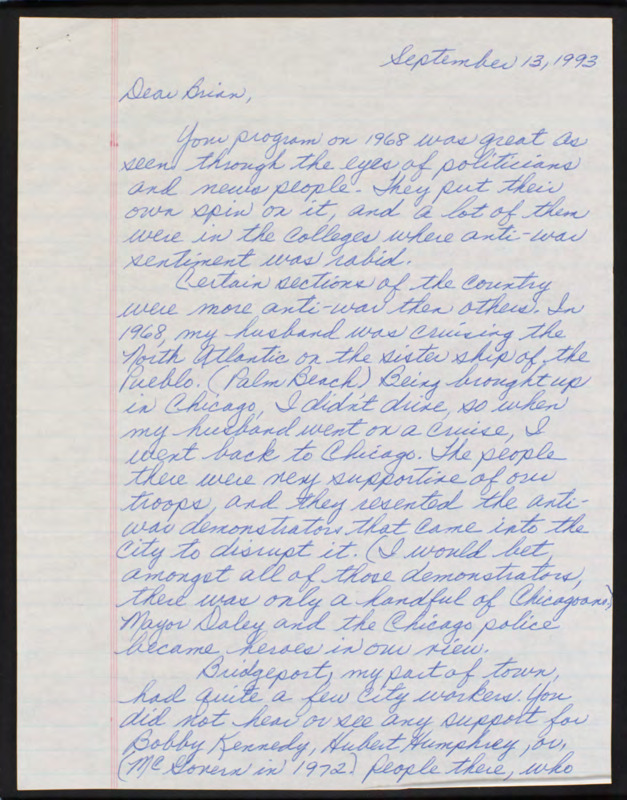 September 13, 1993
Dear Brian,
Your program on 1968 was great as
seen through the eyes of politicians
and news people. They put their
own spin on it, and a lot of them
were in the colleges where anti-war
sentiment was rabid.
Certain sections of the country
were more anti-war then others. In
1968, my husband was cruising the
North Atlantic on the sister ship of the
Pueblo. (Palm Beach) Being brought up
in Chicago, I didn't drive, so when
my husband went on a cruise, I
went back to Chicago. The people
there were very supportive of our
troops, and they resented the anti-
war demonstrators that came into the
city to disrupt it. (I would bet,
amongst all of those demonstrators,
there was only a handful of Chicagoans)
Mayor Daley and the Chicago police
became heroes in our view.
Bridgeport, my part of town,
had quite a few city workers. You
did not hear or see any support for
Bobby Kennedy, Hubert Humphrey, or,
(McGovern in 1972) People there, who